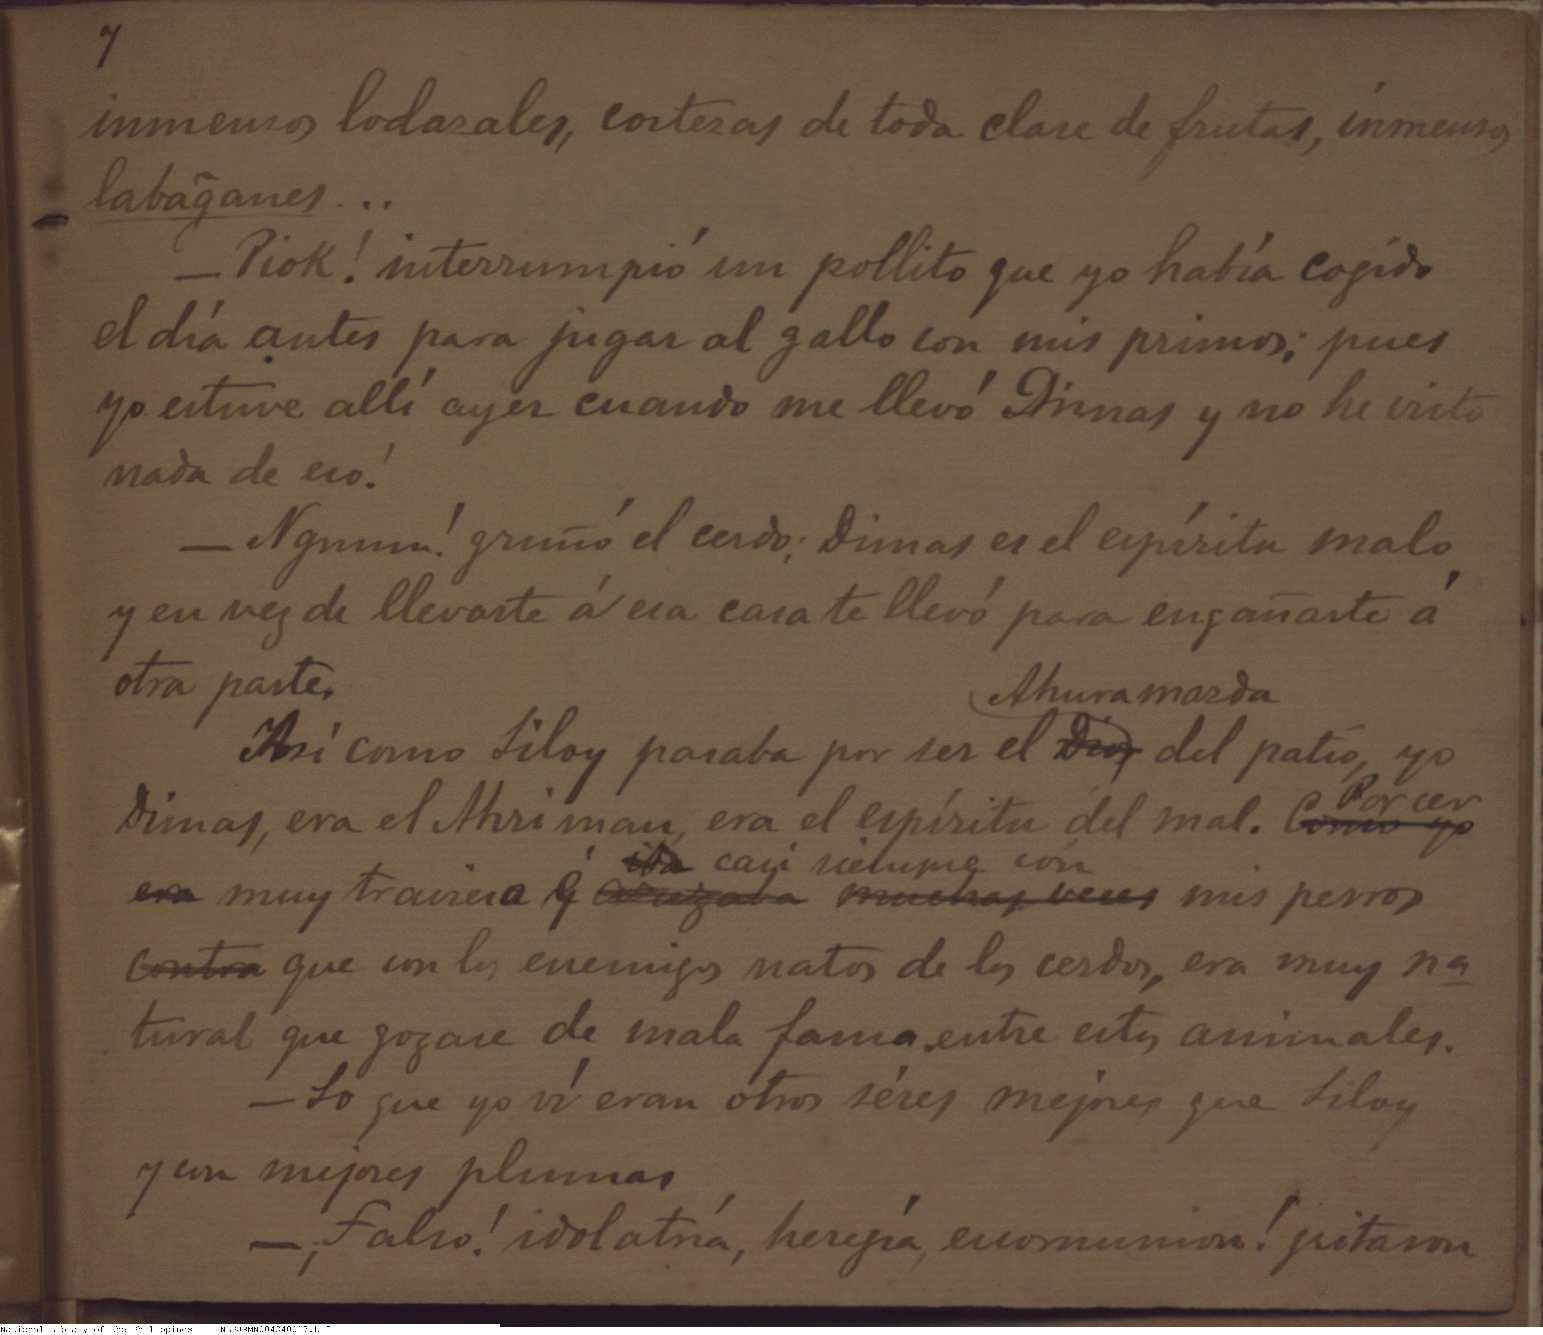 7
inmensos lodazales, cortezas de toda clase de frutas, inmensos
labag̃anes...
— Piok! interrumpió un pollito que yo había cogido
el día antes para jugar al gallo con mis primos; pues
yo estuve allí ayer cuando me llevó Dimas y no he visto
nada de eso!
— Ngmm! gruñó el cerdo; Dimas es el espíritu malo
y en vez de llevarte á esa casa te llevó para engañarte á
otra parte.
Ahuramazda
Así como Siloy pasaba por ser el Dios del patio, yo
Dimas, era el Ahriman, era el espíritu del mal. Como yo
Por ser
iba casi siempre con
era muy traviesa y azuzaba muchas veces mis perros
contra que son los enemigos natos de los cerdos, era muy na
tural que gozase de mala fama entre estos animales.
— Lo que yo ví eran otros séres mejores que Siloy
y con mejores plumas
— ¡Falso! idolatría, heregía, escomunion! gritaron
National Library of the Philippines